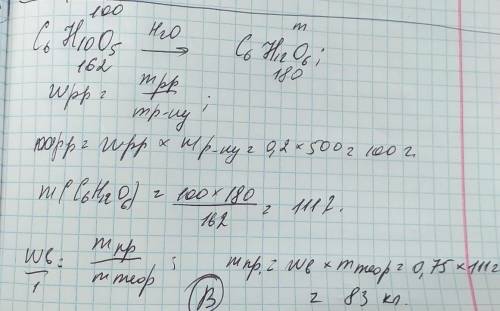 100 m
C6 H10O5 H2O → C6 H12O6;
162 180
Wрр = mрр / mр-ну;
mрр = Wрр × mр-ну = 0,2 × 500 = 100 г.
m(C6H12O6) = 100 × 180 / 162 = 111 г.
Wв / 1 = mпр / mтеор; mпр. = Wв × mтеор = 0,75 × 111 =
В = 83